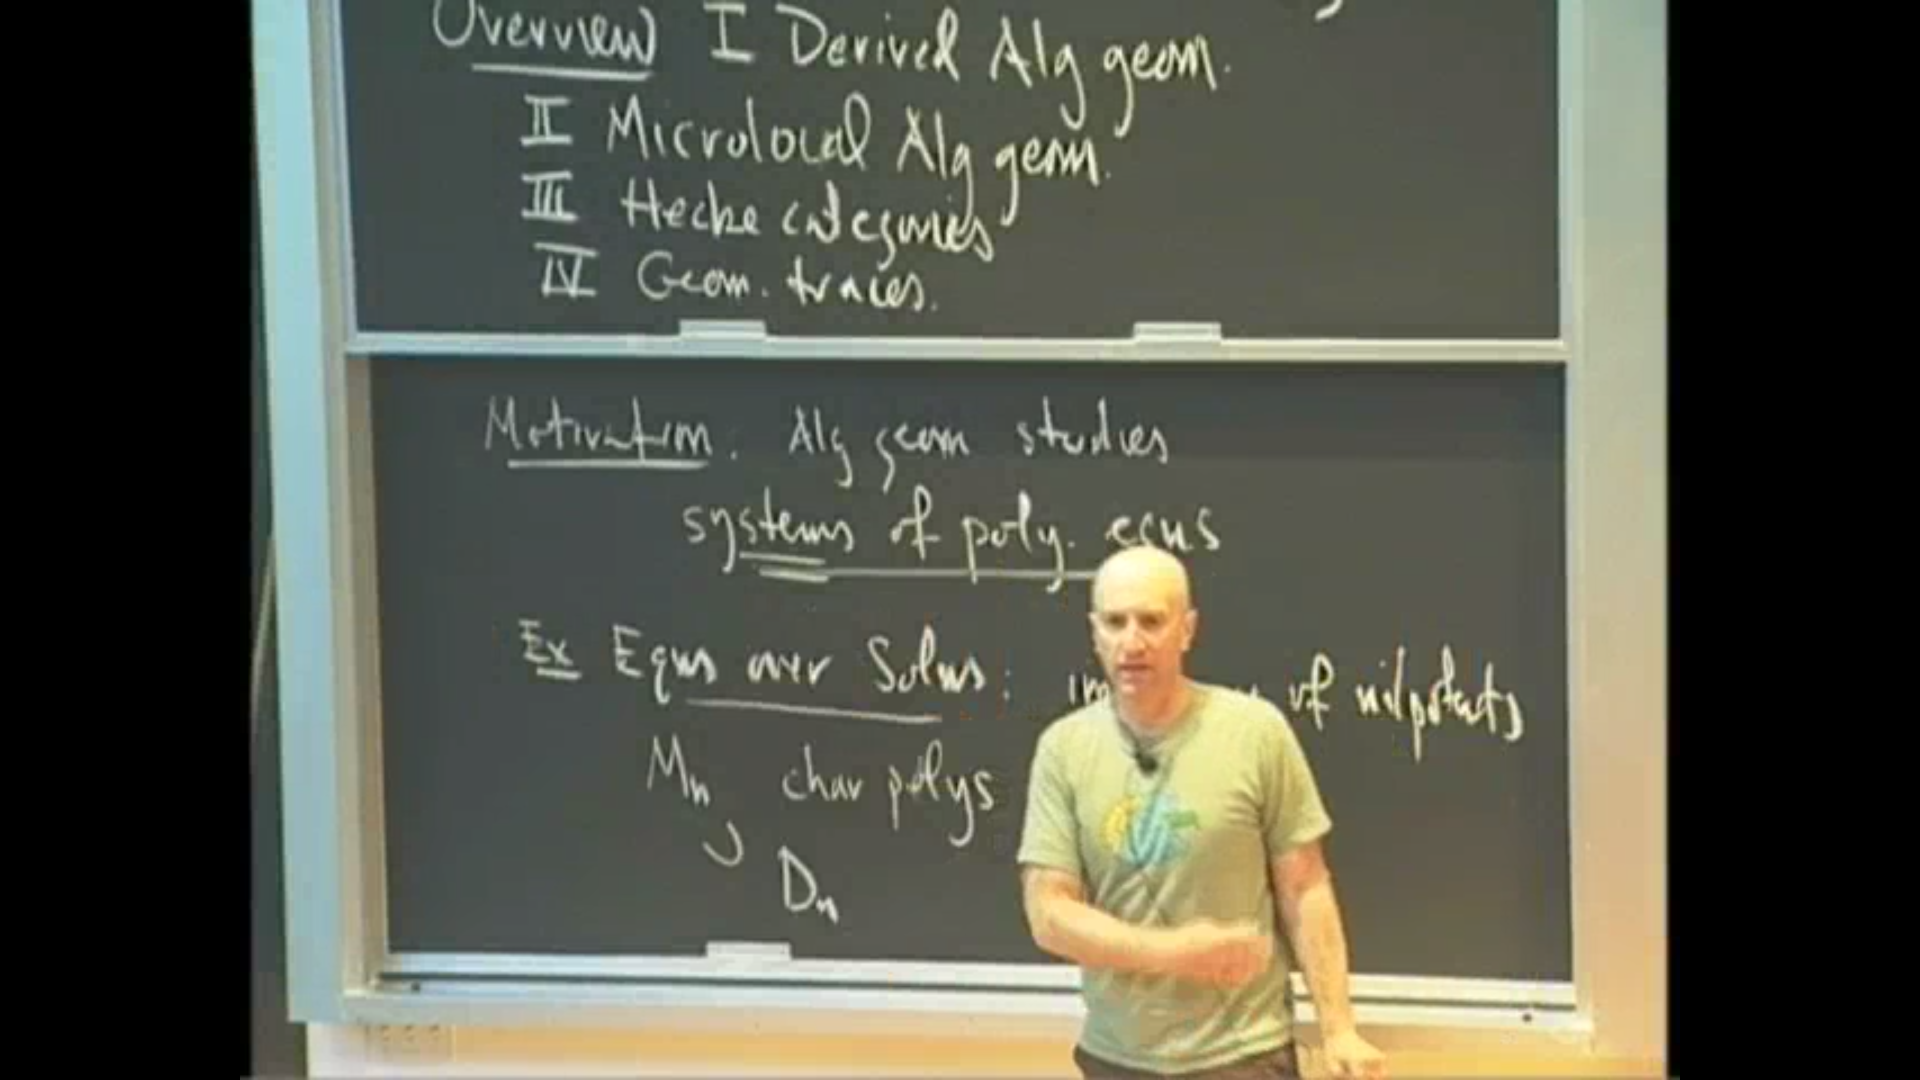 Overview I Derived Alg geom.
II Microlocal Alg geom.
III Hecke categories
IV Geom. traces.
Motivation: Alg geom studies
systems of poly. eqns
Ex Eqns over Solns: of nilpotents
Mn char polys
Dn